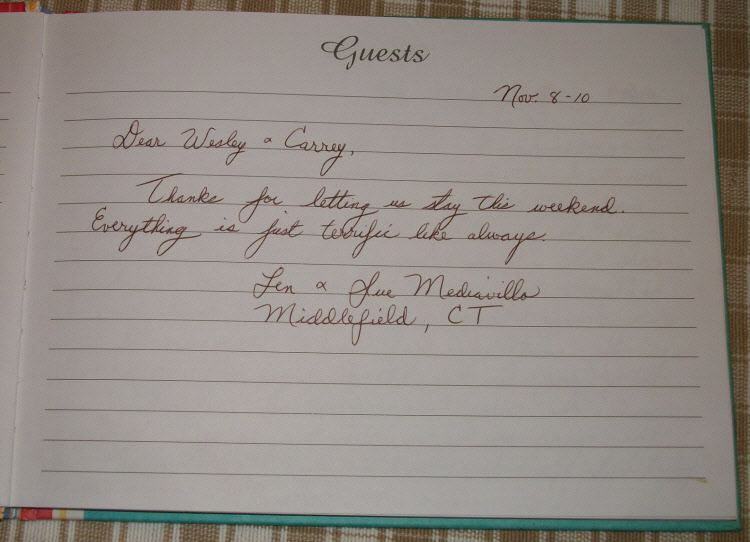 Guests
Nov. 8-10
Dear Wesley & Carrey,
Thanks for letting us stay this weekend.
Everything is just terrific like always.
Len & Sue Mediavilla
Middlefield, CT